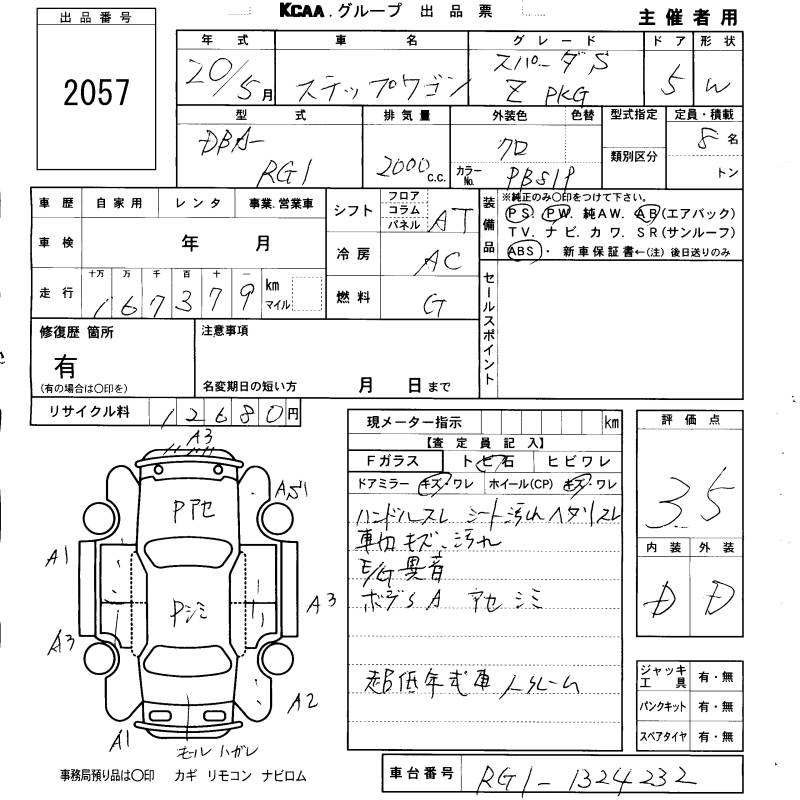 KCAA.グループ 出品票
主催者用
出品番号
2057
年式 車名 グレード ドア 形状
20/5月 ステップワゴン スパーダS Z PKG 5 W
型式 排気量 外装色 色替 型式指定 定員・積載
DBA-RG1 2000c.c. クロ 類別区分 8名
カラーNo. PBS1P トン
車歴 自家用 レンタ 事業.営業車
車検 年 月
走行 十万 万 千 百 十 一 km マイル
167379
シフト フロア コラム パネル AT
冷房 AC
燃料 G
装備品 ※純正のみ〇印をつけて下さい。
PS. PW. 純AW. AB(エアバック)
TV. ナビ. カワ. SR(サンルーフ)
ABS・ 新車保証書←(注) 後日送りのみ
セールスポイント
修復歴 箇所
有
(有の場合は〇印を)
注意事項
名変期日の短い方 月 日まで
リサイクル料 12680円
現メーター指示 km
【査定員記入】
Fガラス トビ石 ヒビワレ
ドアミラー キズ・ワレ ホイール(CP) キズ・ワレ
ハンドルスレ シート汚れ ヘタリ スレ
車内キズ、汚れ
E/G異音
ボデSA アセ シミ
超低年式車
評価点
3.5
内装 外装
D D
ジャッキ工具 有・無
パンクキット 有・無
スペアタイヤ 有・無
A3
Pアセ
A1
Pシミ
A3
A3
A2
A1
モール ハガレ
事務局預り品は〇印 カギ リモコン ナビロム
車台番号 RG1-1324232